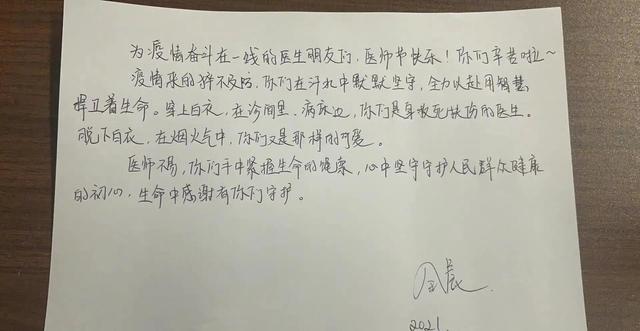 为疫情奋斗在一线的医生朋友们，医师节快乐！你们辛苦啦～
疫情来的猝不及防，你们在汗水中默默坚守，全力以赴用智慧
捍卫着生命。穿上白衣，在诊间里，病床边，你们是救死扶伤的医生。
脱下白衣，在烟火气中，你们又是那样的可爱。
医师不易，你们手中紧握生命的健康，心中坚守守护人民群众健康
的初心，生命中感谢有你们守护。
2021.